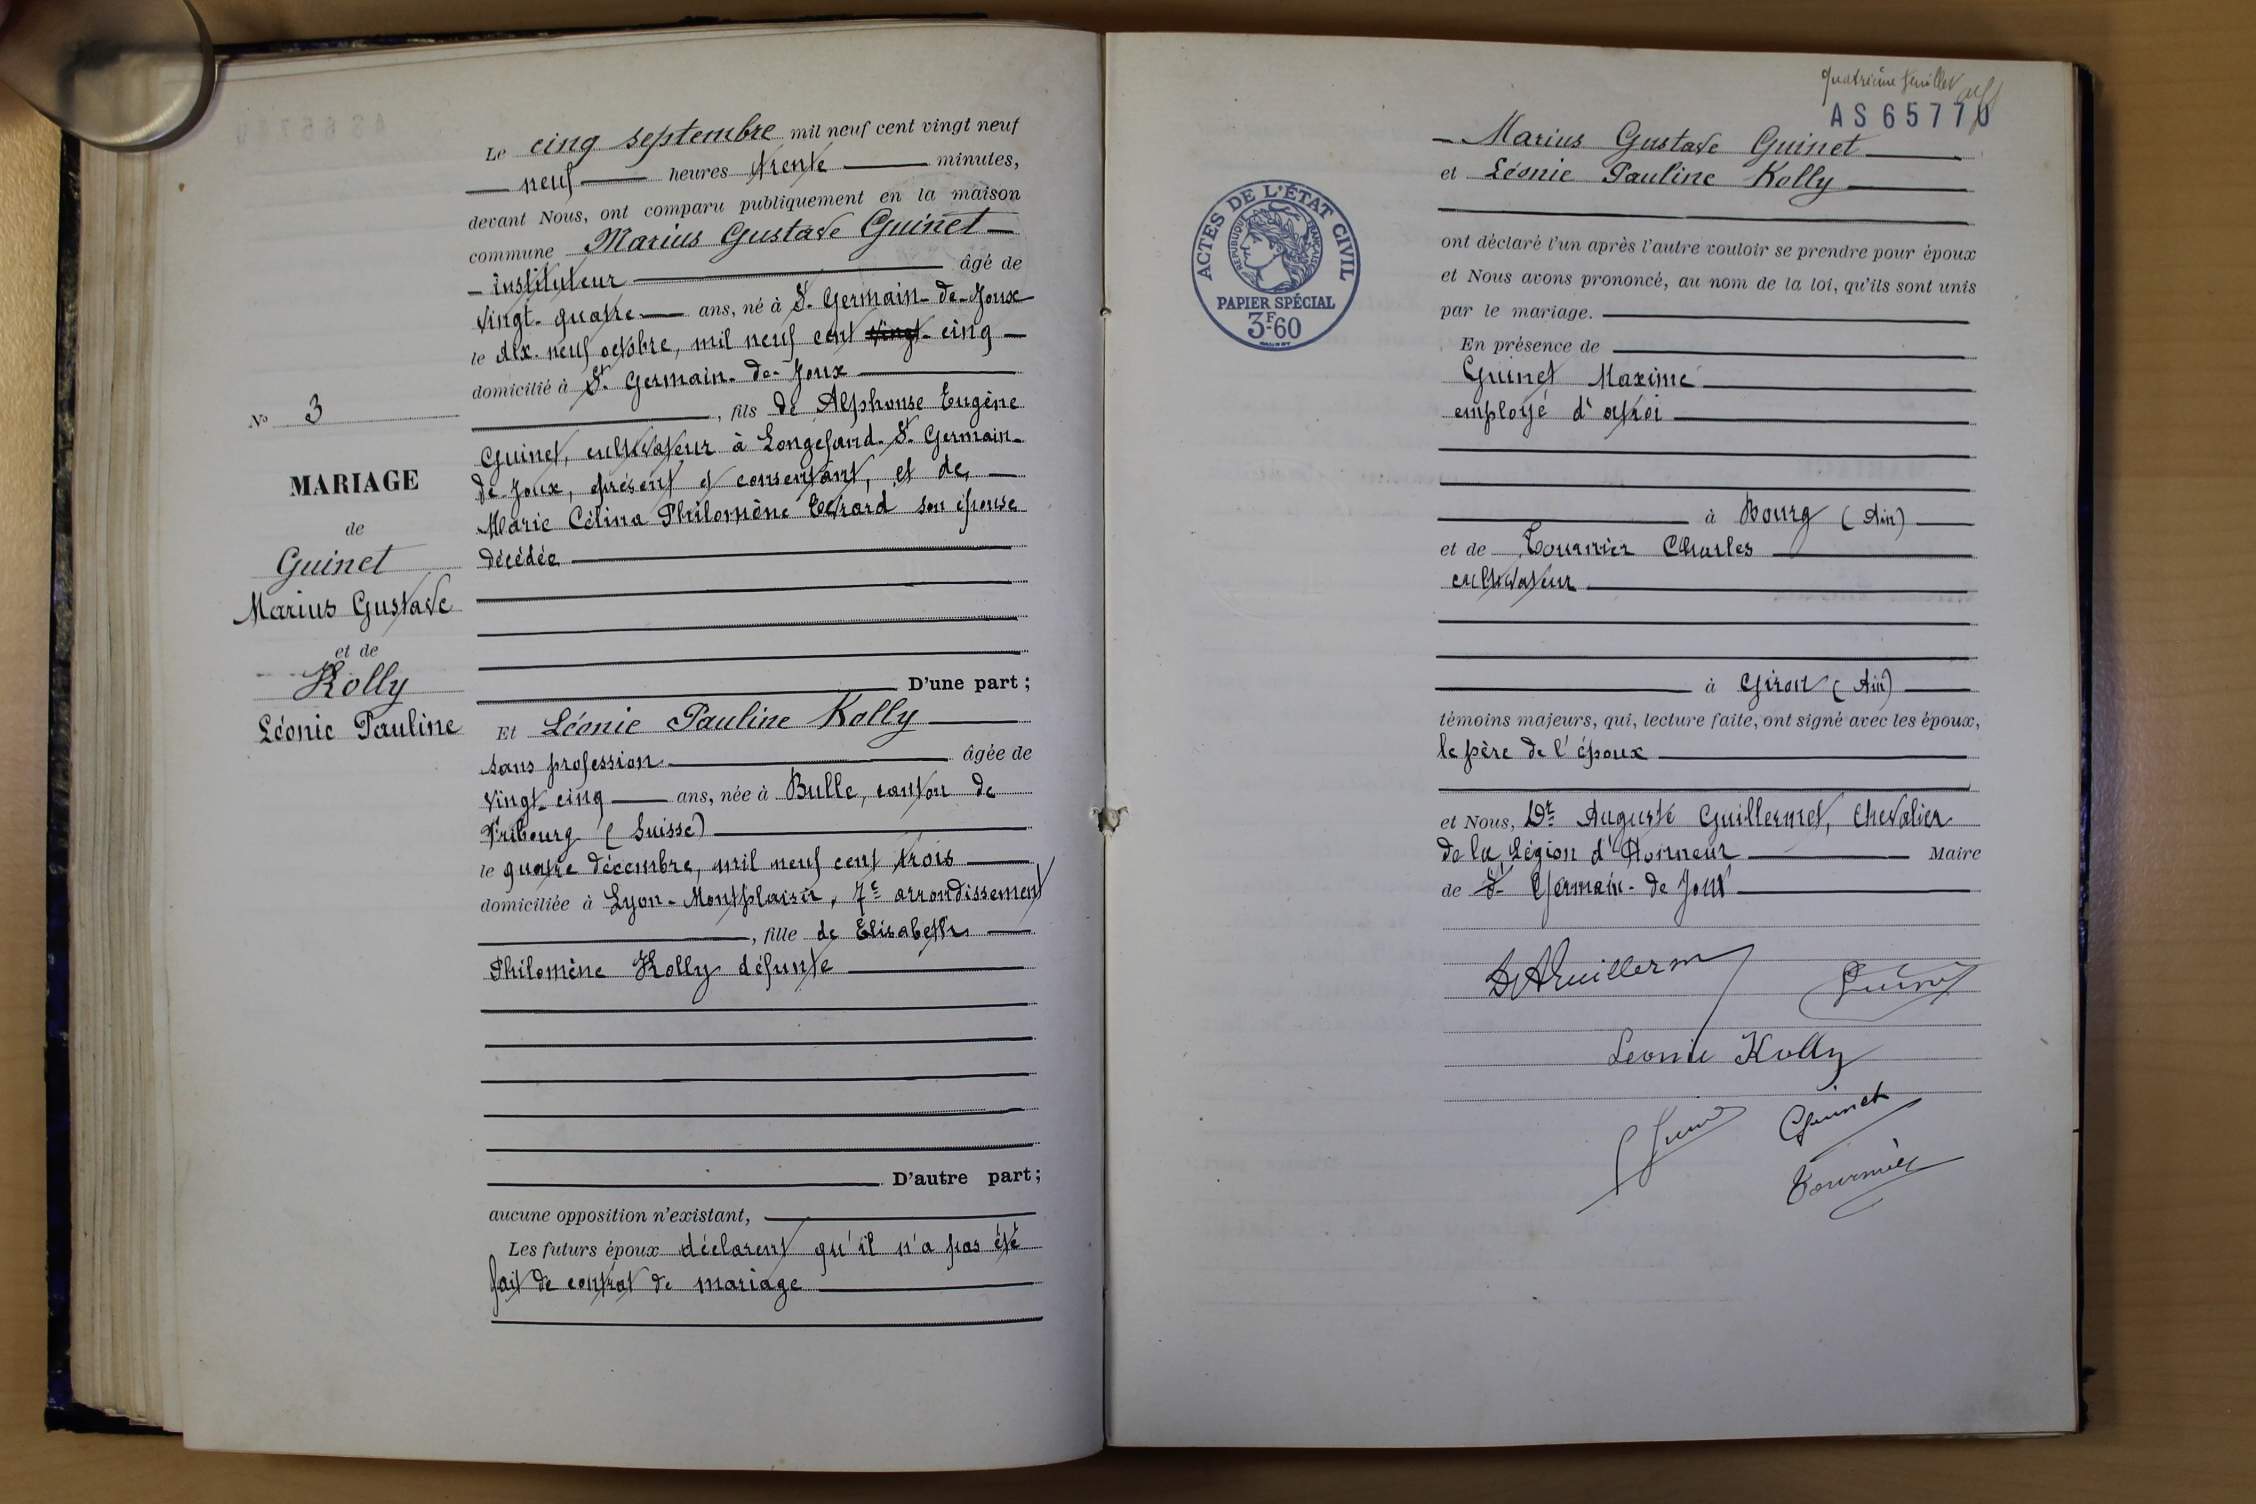 Le cinq septembre mil neuf cent vingt neuf
neuf heures trente minutes,
devant Nous, ont comparu publiquement en la maison
commune Marius Gustave Guinet
instituteur âgé de
vingt-quatre ans, né à St Germain-de-Joux
le dix-neuf octobre, mil neuf cent vingt-cinq
domicilié à St Germain-de-Joux
, fils de Alphonse Eugène
Guinet, cultivateur à Longefand-St Germain-
de Joux, présent et consentant, et de
Marie Célina Philomène son épouse
décédée
D'une part ;
N° 3
MARIAGE
de
Guinet
Marius Gustave
et de
Kolly
Léonie Pauline
Et Léonie Pauline Kolly
sans profession âgée de
vingt-cinq ans, née à Bulle, canton de
Fribourg (Suisse)
le quatre décembre, mil neuf cent trois
domiciliée à Lyon-Montplaisir, 7e arrondissement
, fille de Elisabeth
Philomène Kolly défunte
D'autre part ;
aucune opposition n'existant,
Les futurs époux déclarent qu'il n'a pas été
fait de contrat de mariage
quatrième feuillet
AS65770
Marius Gustave Guinet
et Léonie Pauline Kolly
ACTES DE L'ÉTAT CIVIL
RÉPUBLIQUE FRANÇAISE
PAPIER SPÉCIAL
3F60
ont déclaré l'un après l'autre vouloir se prendre pour époux
et Nous avons prononcé, au nom de la loi, qu'ils sont unis
par le mariage.
En présence de
Guinet Maxime
employé d'octroi
à Bourg (Ain)
et de Tournier Charles
cultivateur
à Giron (Ain)
témoins majeurs, qui, lecture faite, ont signé avec les époux,
le père de l'époux
et Nous, Dr Auguste Guillermet, Chevalier
de la Légion d'Honneur Maire
de St Germain-de Joux
Guinet
Leonie Kolly
Guinet
Tournier